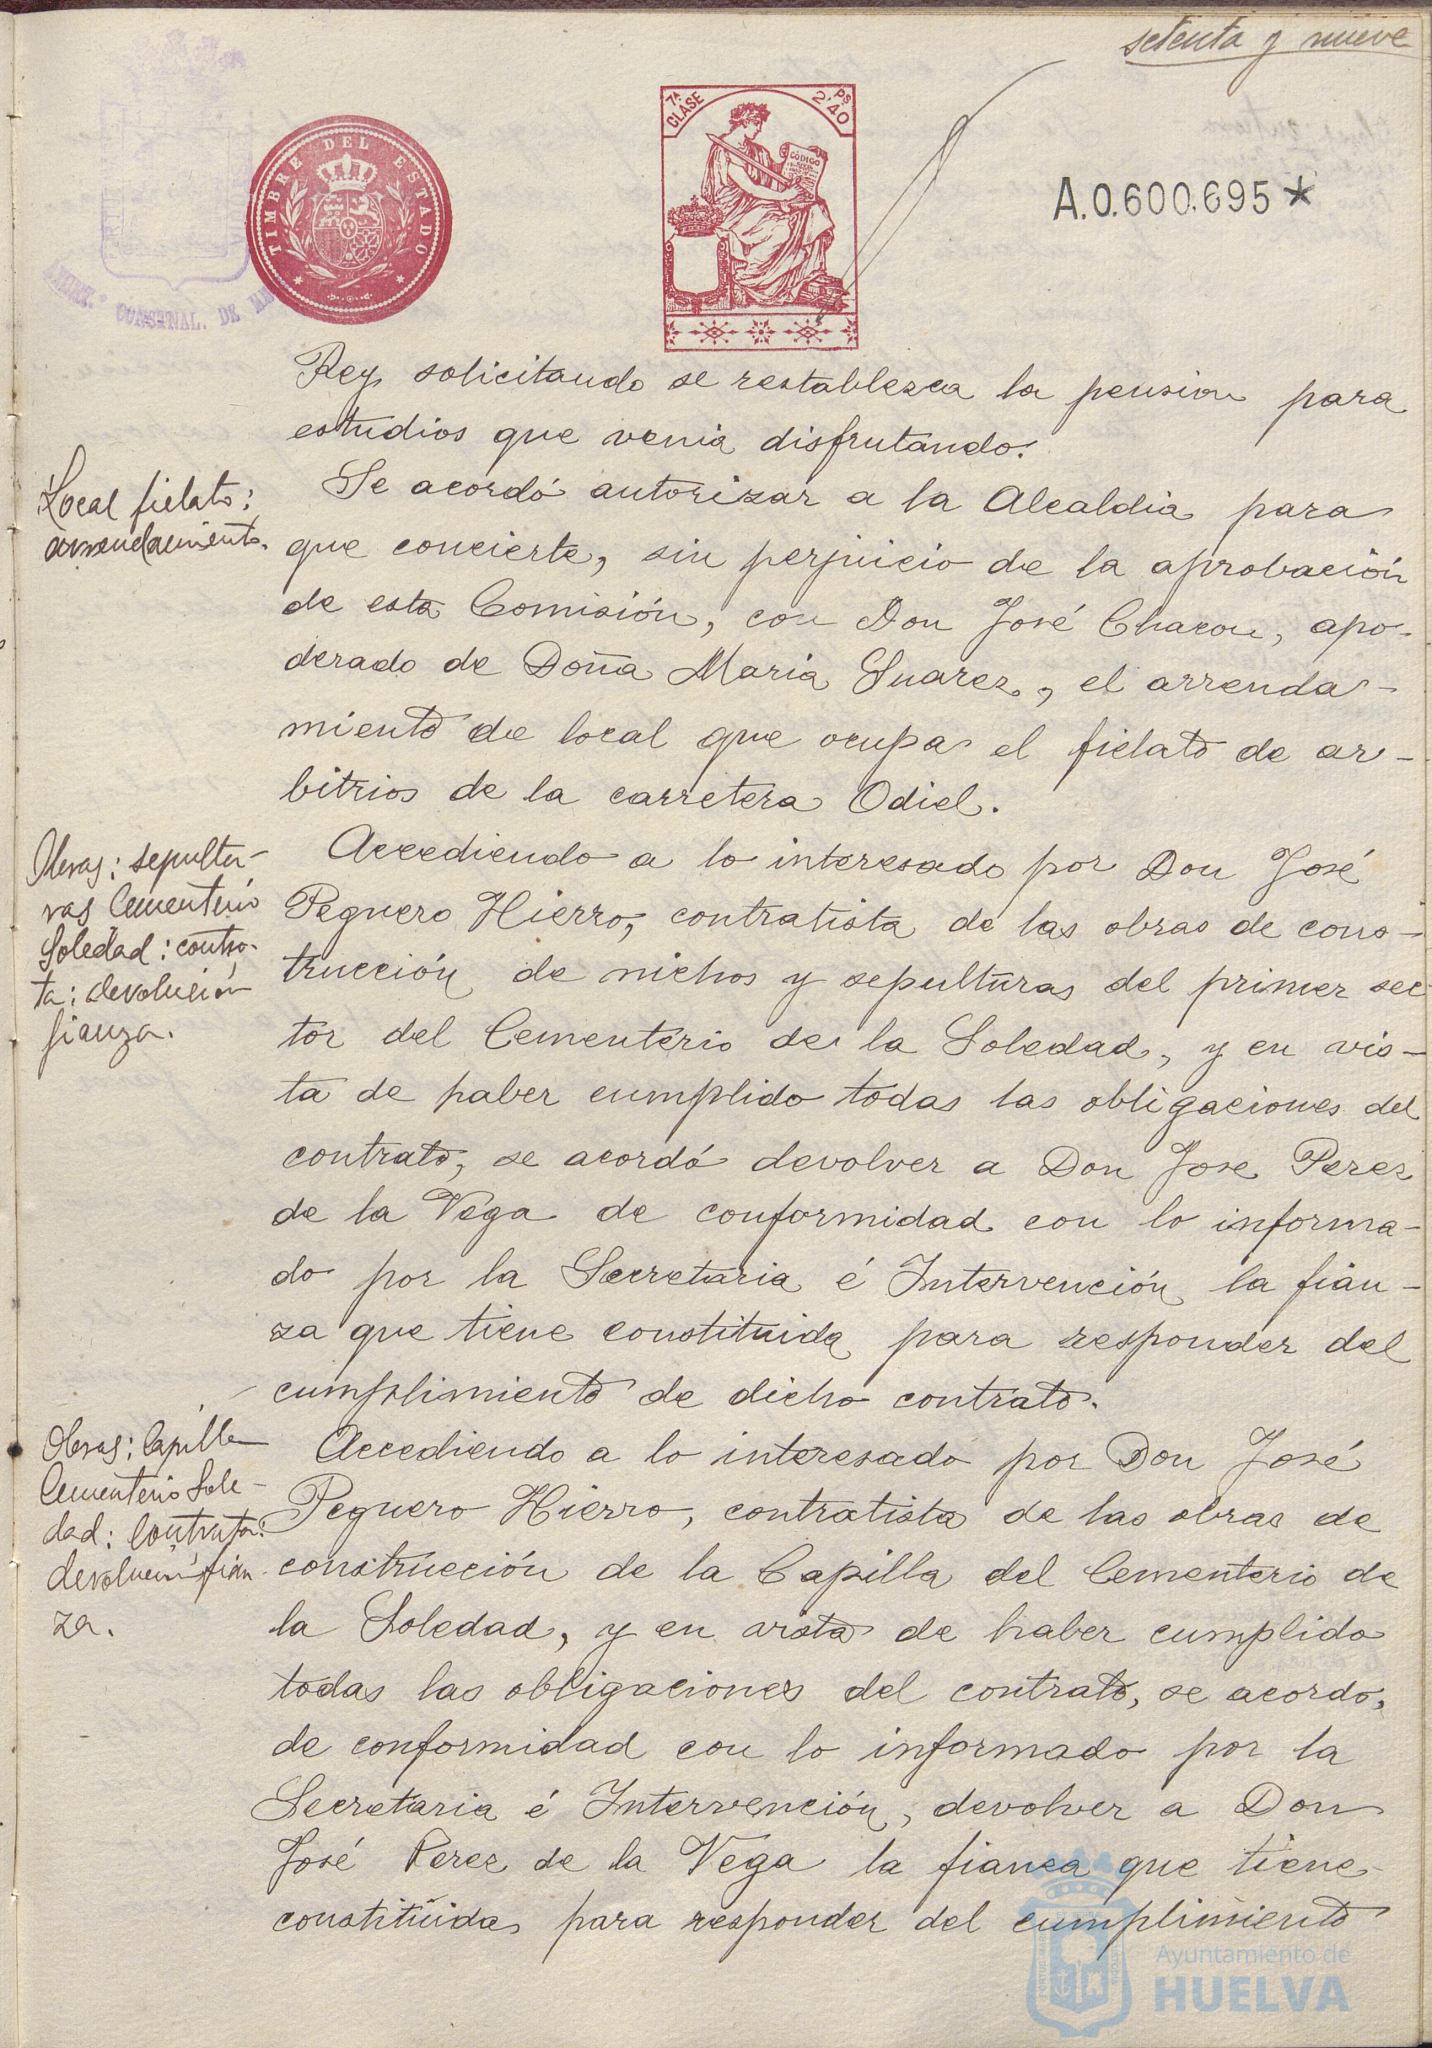 setenta y nueve
TIMBRE DEL ESTADO
7ª CLASE
PS 2'40
CODIGO
A.0.600.695*
CONSTNAL. DE
Rey solicitando se restablezca la pension para
estudios que venia disfrutando.
Local fielato:
arrendamiento.
Se acordó autorizar a la Alcaldia para
que concierte, sin perjuicio de la aprobación
de esta Comisión, con Don José Chacon, apo-
derado de Doña Maria Suarez, el arrenda-
miento de local que ocupa el fielato de ar-
bitrios de la carretera Odiel.
Obras: sepultu-
ras Cementerio
Soledad: contra-
ta: devolución
fianza.
Accediendo a lo interesado por Don José
Peguero Hierro, contratista de las obras de cons-
trucción de nichos y sepulturas del primer sec
tor del Cementerio de la Soledad, y en vis-
ta de haber cumplido todas las obligaciones del
contrato, se acordó devolver a Don Jose Perez
de la Vega de conformidad con lo informa-
do por la Secretaria é Intervención la fian-
za que tiene constituida para responder del
cumplimiento de dicho contrato.
Obras: Capilla
Cementerio Sole-
dad: Contrata:
devolución fian
za.
Accediendo a lo interesado por Don José
Peguero Hierro, contratista de las obras de
construcción de la Capilla del Cementerio de
la Soledad, y en vista de haber cumplido
todas las obligaciones del contrato, se acordo,
de conformidad con lo informado por la
Secretaria é Intervención, devolver a Don
José Perez de la Vega la fianza que tiene
constituida para responder del cumplimiento
Ayuntamiento de
HUELVA